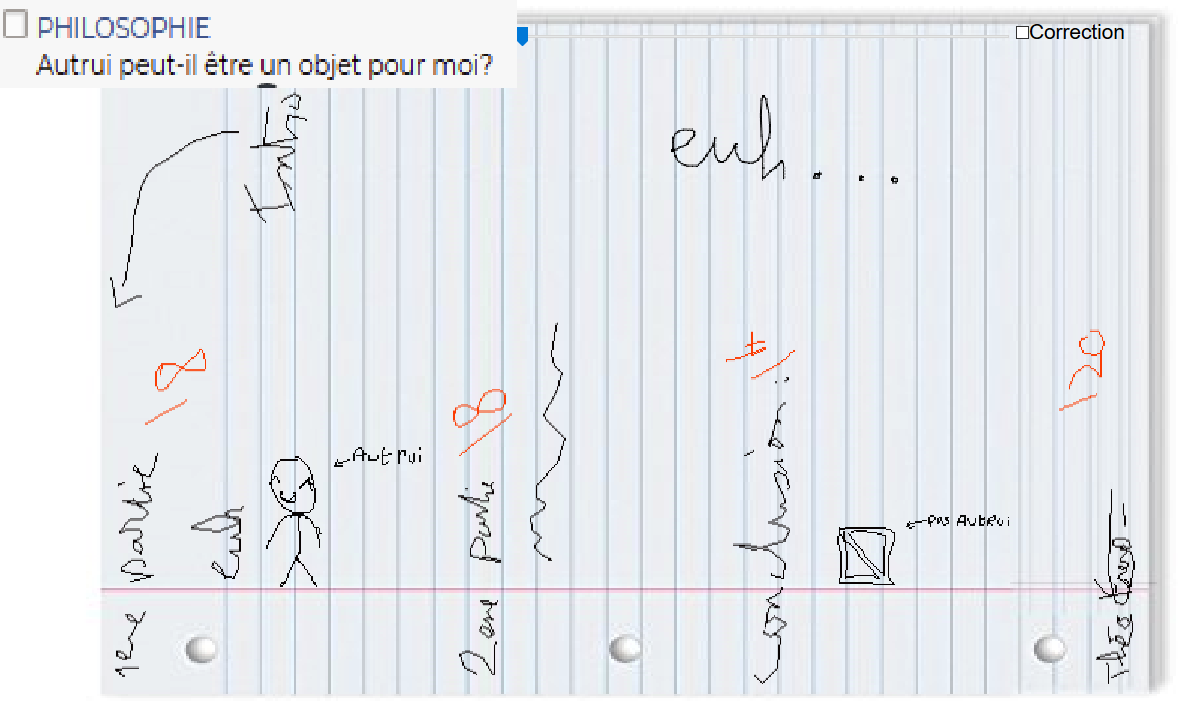 PHILOSOPHIE
Autrui peut-il être un objet pour moi?
Correction
Intro
euh...
1ere partie /8
euh
←Autrui
2eme partie /8
conclusion: /4
←pas Autrui
/20